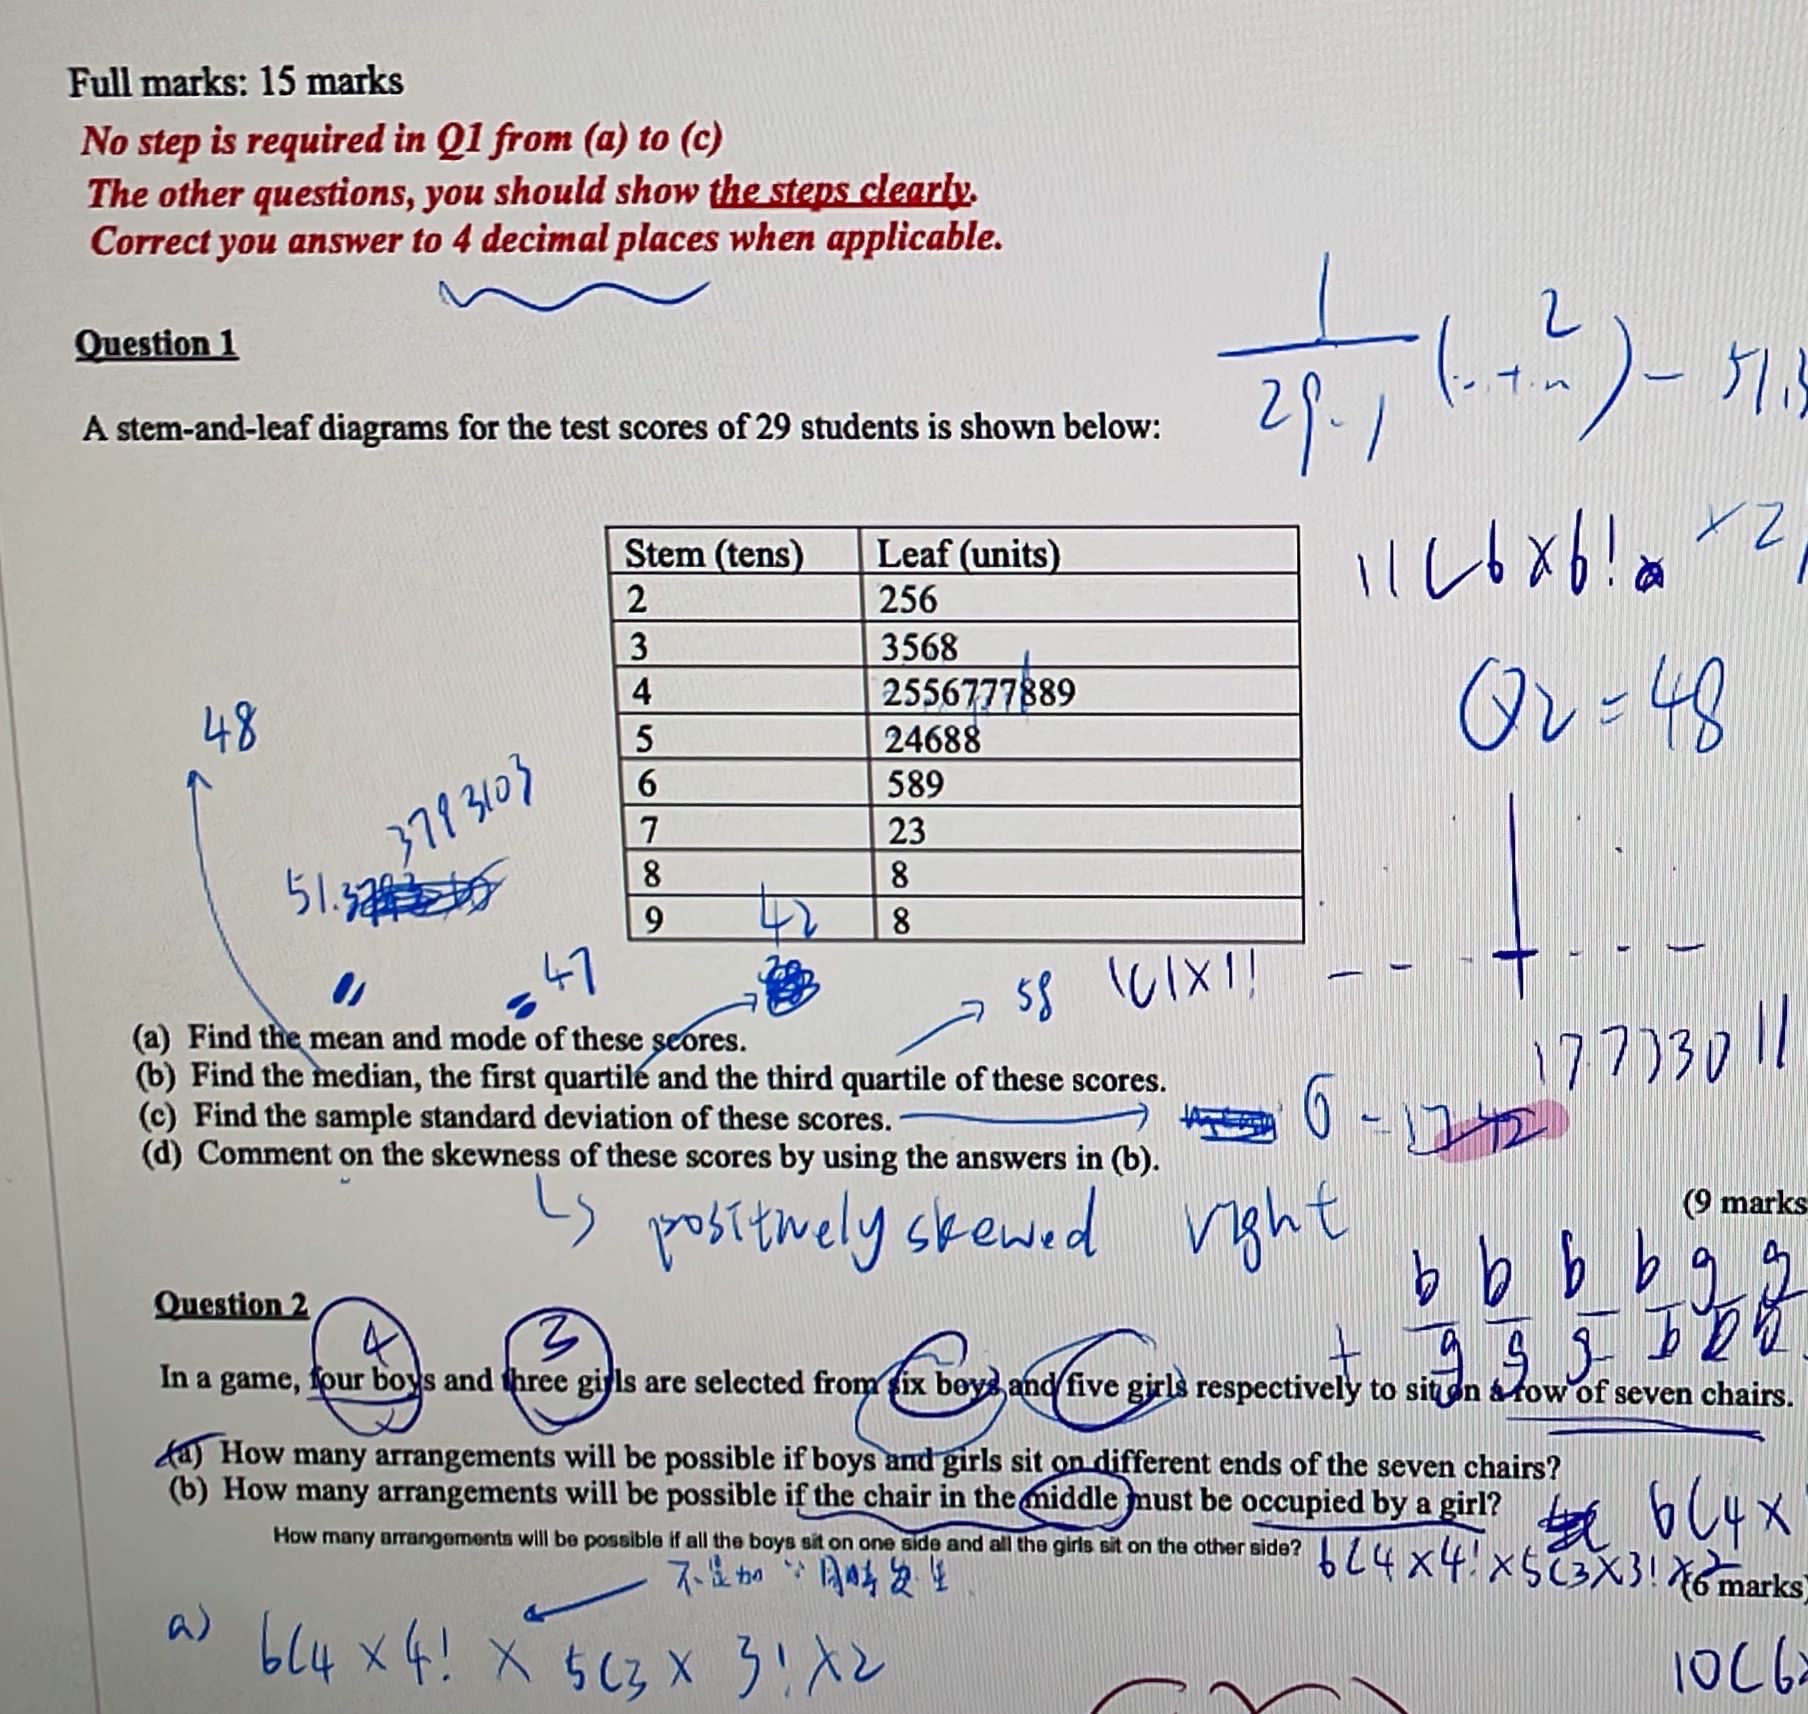 Full marks: 15 marks
No step is required in Q1 from (a) to (c)
The other questions, you should show the steps clearly.
Correct you answer to 4 decimal places when applicable.
Question 1
A stem-and-leaf diagrams for the test scores of 29 students is shown below:
Stem (tens) Leaf (units)
2 256
3 3568
4 2556777889
5 24688
6 589
7 23
8 8
9 8
11C6x6!
Q2=48
48
3793103
51.
42
=47
58
1C1x1!
(a) Find the mean and mode of these scores.
(b) Find the median, the first quartile and the third quartile of these scores.
(c) Find the sample standard deviation of these scores.
(d) Comment on the skewness of these scores by using the answers in (b).
positively skewed right
(9 marks
b b b b g g
g g g b b b
Question 2
4
3
In a game, four boys and three girls are selected from six boys and five girls respectively to sit on a row of seven chairs.
(a) How many arrangements will be possible if boys and girls sit on different ends of the seven chairs?
(b) How many arrangements will be possible if the chair in the middle must be occupied by a girl?
6C4x
How many arrangements will be possible if all the boys sit on one side and all the girls sit on the other side?
6C4x4!x5C3x3!x2
(6 marks)
a) 6C4 x 4! x 5C3 x 3! x2
10C6x